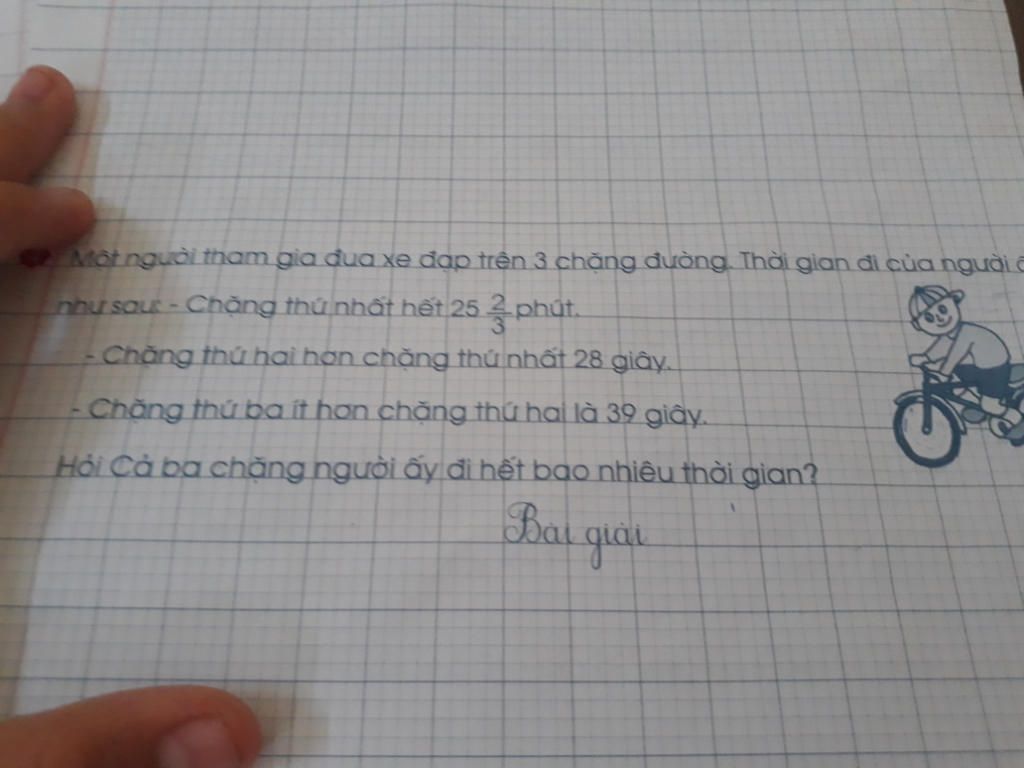 Một người tham gia đua xe đạp trên 3 chặng đường. Thời gian đi của người
như sau: - Chặng thứ nhất hết 25 2/3 phút.
- Chặng thứ hai hơn chặng thứ nhất 28 giây.
- Chặng thứ ba ít hơn chặng thứ hai là 39 giây.
Hỏi Cả ba chặng người ấy đi hết bao nhiêu thời gian?
Bài giải